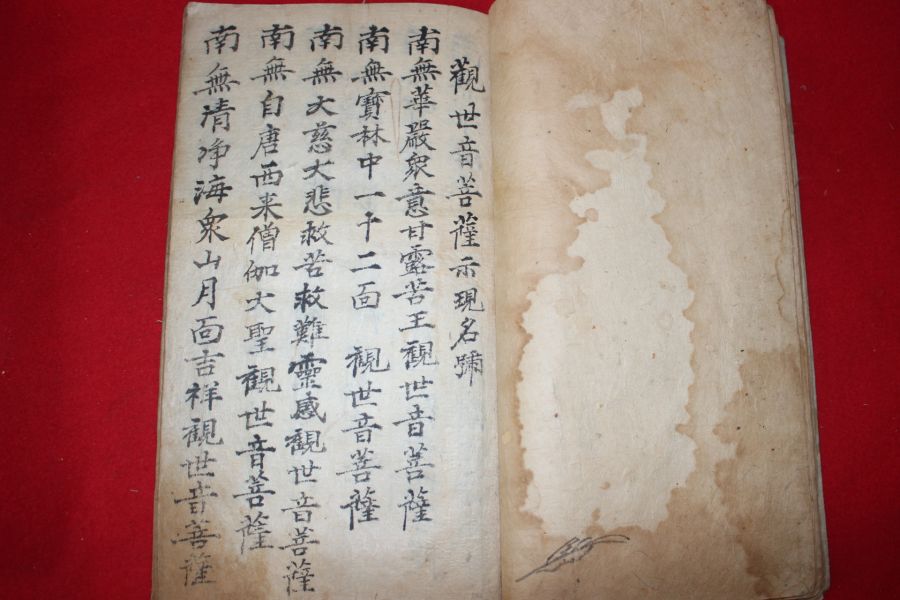 觀世音菩薩示現名號
南無華嚴衆意甘露苦王觀世音菩薩
南無寶林中一千二面觀世音菩薩
南無大慈大悲救苦救難靈感觀世音菩薩
南無自唐西来僧伽大聖觀世音菩薩
南無清净海衆山月面吉祥觀世音菩薩